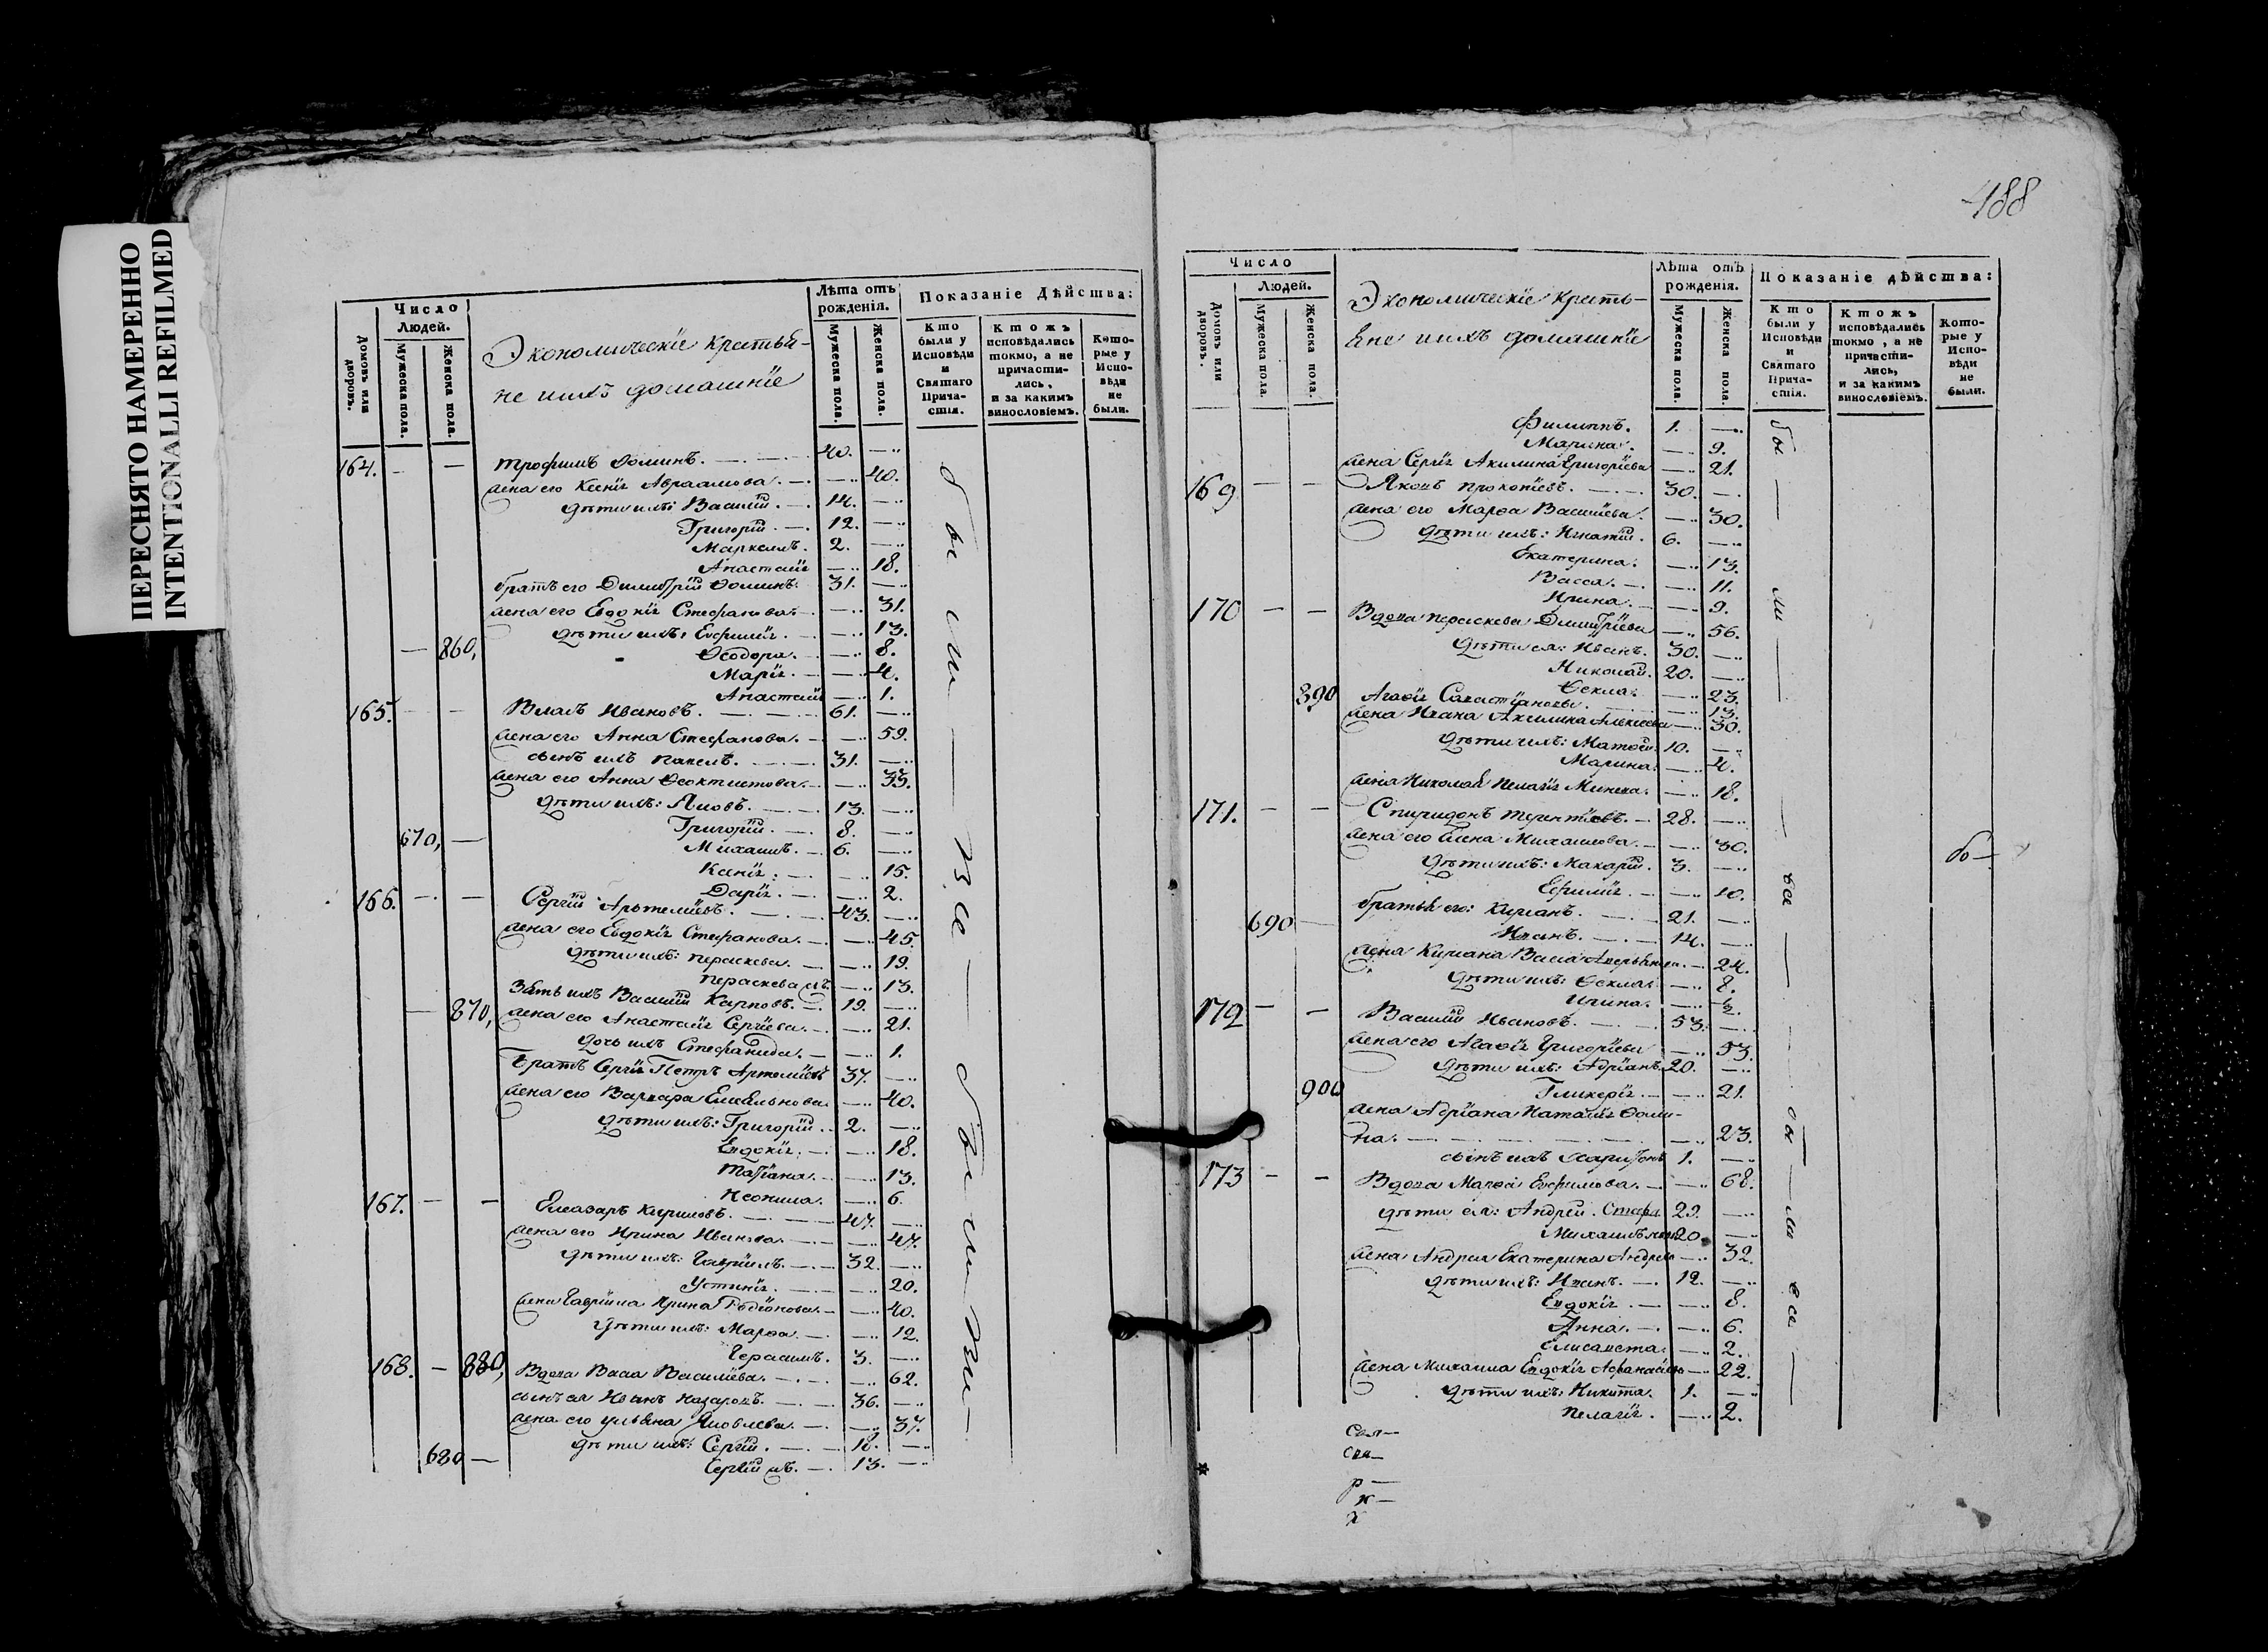 ПЕРЕСНЯТО НАМЕРЕННО
INTENTIONALLI REFILMED
488
Число
Людей.
Домовъ или дворовъ.
Мужеска пола.
Женска пола.
Экономическїе крестья-
не и ихъ домашнїе
Лѣта отъ рожденїя.
Мужеска пола.
Женска пола.
Показанїе Дѣйства:
Кто были у Исповѣди и Святаго Прича-стїя.
Ктожъ исповѣдались токмо, а не причасти-лись, и за какимъ винословїемъ.
Кото-рые у Испо-вѣди не были.
164. - — Трофимъ Ѳоминъ. 40. —
жена его Ксенїя Авраамова. — 40.
дѣти ихъ: Василїй. 14. —
Григорїй. 12. —
Маркеллъ. 2. —
Анастасїя — 18.
братъ его Димитрїй Ѳоминъ. 31. —
жена его Евдокїя Стефанова. — 31.
дѣти ихъ: Евфимїя. — 13.
— 860, Ѳеодора. — 8.
Марїя. — 4.
Анастасїя — 1.
165. — — Власъ Ивановъ. 61. —
жена его Анна Стефанова. — 59.
сынъ ихъ Павелъ. 31. —
жена его Анна Ѳеоктистова. — 33.
дѣти ихъ: Яковъ. 13. —
Григорїй. 8. —
670, — Михаилъ. 6. —
— 15.
Дарїя. — 2.
166. — — Сергїй Артемїевъ. 43. —
жена его Евдокїя Стефанова. — 45.
дѣти ихъ: Параскева. — 19.
Параскева мъ. — 13.
Зять ихъ Василїй Карповъ. 19. —
— 870, жена его Анастасїя Сергїева. — 21.
дочь ихъ Стефанида. — 1.
Братъ Сергїя Петръ Артемїевъ 37. —
жена его Варвара Емельянова — 40.
дѣти ихъ: Григорїй. 2. —
Евдокїя. — 18.
Татїана. — 13.
Неонила. — 6.
167. — — Елеазаръ Кириловъ. 47. —
жена его Ирина Иванова. — 47.
дѣти ихъ: Гаврїилъ. 32. —
Устинїя. — 20.
жена Гаврїила Ирина Родїонова. — 40.
дѣти ихъ: Марѳа. — 12.
Герасимъ. 3. —
168. — 880, Вдова Васса Василїева. — 62.
сынъ ея Иванъ Назаровъ. 36. —
жена его Ульяна Яковлева. — 37.
дѣти ихъ: Сергїй. 18. —
680 — Сергїй мъ. 13. —
бы ли — все — бы ли все —
Число
Людей.
Домовъ или дворовъ.
Мужеска пола.
Женска пола.
Экономическїе кресть-
яне и ихъ домашнїе
Лѣта отъ рожденїя.
Мужеска пола.
Женска пола.
Показанїе дѣйства:
Кто были у Исповѣди и Святаго Прича-стїя.
Ктожъ исповѣдались токмо, а не причасти-лись, и за какимъ винословїемъ.
Кото-рые у Испо-вѣди не были.
Филиппъ. 1. —
Марина. — 9.
жена Сергїя Акилина Григорїева — 21.
169 — — Яковъ Прокопїевъ. 30. —
жена его Марѳа Василїева. — 30.
дѣти ихъ: Игнатїй. 6. —
Екатерина. — 13.
Васса. — 11.
Ирина. — 9.
170 — — Вдова Параскева Димитрїева — 56.
дѣти ея: Иванъ. 30. —
Николай. 20. —
Ѳекла. — 23.
890 Агаѳїя — 13.
жена Ивана Акилина Алексеева — 30.
дѣти ихъ: Матѳей. 10. —
Марина. — 4.
жена Николая Пелагїя Минеева. — 18.
171. — — Спиридонъ Терентїевъ. 28. —
жена его Елена Михаилова. — 30.
дѣти ихъ: Макарїй. 3. —
Евфимїя. — 10.
690 — братья его: Кирианъ. 21. —
Иванъ. 14. —
жена Кириана Васса — 24.
дѣти ихъ: Ѳекла. — 8.
Ирина. —
172 — — Василїй Ивановъ. 53. —
жена его Агаѳїя Григорїева — 53.
дѣти ихъ: Адрїанъ. 20. —
900 Гликерїя. — 21.
жена Адрїана Наталїя Ѳоми-
на. — 23.
сынъ ихъ Харитонъ 1. —
173 — — Вдова Марѳа Евфимова. — 68.
дѣти ея: Андрей. 29. —
Михаилъ 20. —
жена Андрея Екатерина Андреева — 32.
дѣти ихъ: Иванъ. 12. —
Евдокїя. — 8.
Анна. — 6.
Елисавета. — 2.
жена Михаила Евдокїя Афанасїева — 22.
дѣти ихъ: Никита. 1. —
Пелагїя. — 2.
бы — ли — все — бы — ли все —